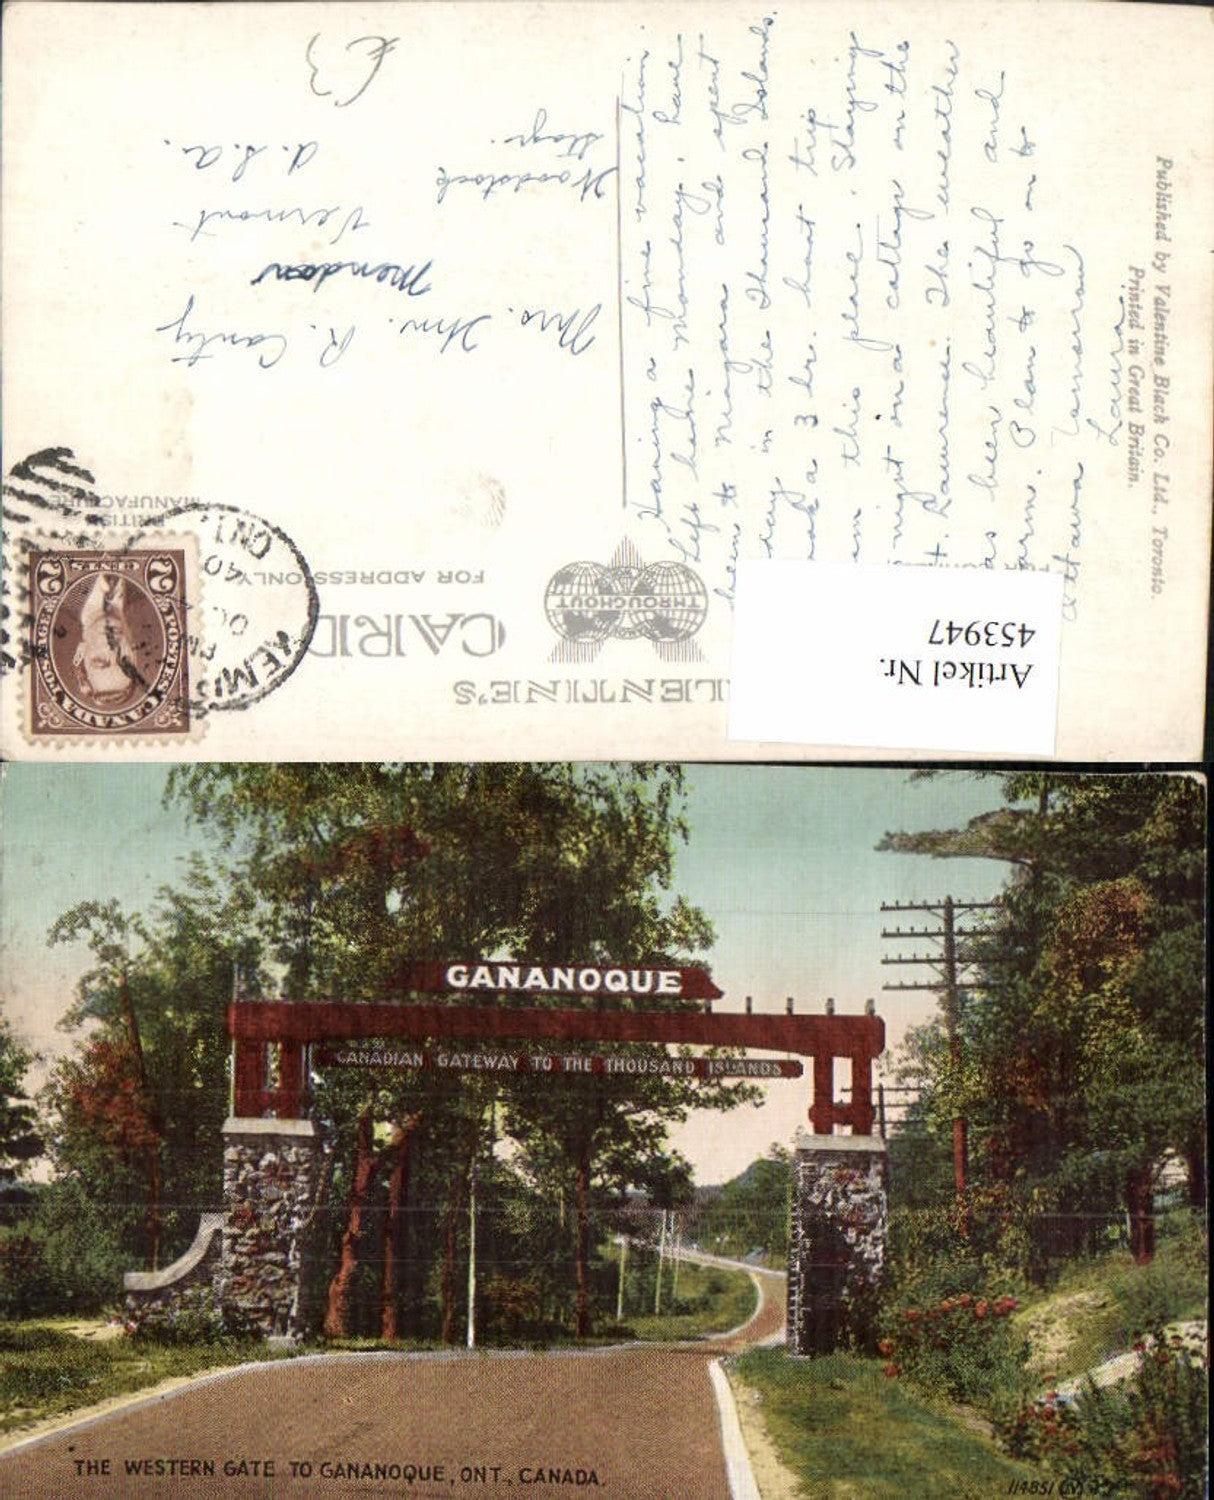 Having a fine vacation.
Left home Monday, have
been to Niagara and spent
day in the Thousand Islands.
a 3 hr. boat trip
this place. Staying
night in a cottage on the
Lawrence. The weather
has been beautiful and
warm. Plan to go on to
Ottawa Tomorrow
Laura
Published by Valentine Black Co. Ltd., Toronto.
Printed in Great Britain.
Mrs. Wm. R. Canty
Mendon
Vermont
U.S.A.
Woodstock
Stage.
£3
VALENTINE'S
CARD
FOR ADDRESS ONLY
THROUGHOUT
BRITISH
MANUFACTURE
2 2
CENTS
POSTAGE CANADA POSTES
PM
40
ONT.
Artikel Nr.
453947
GANANOQUE
CANADIAN GATEWAY TO THE THOUSAND ISLANDS
THE WESTERN GATE TO GANANOQUE, ONT., CANADA.
114851